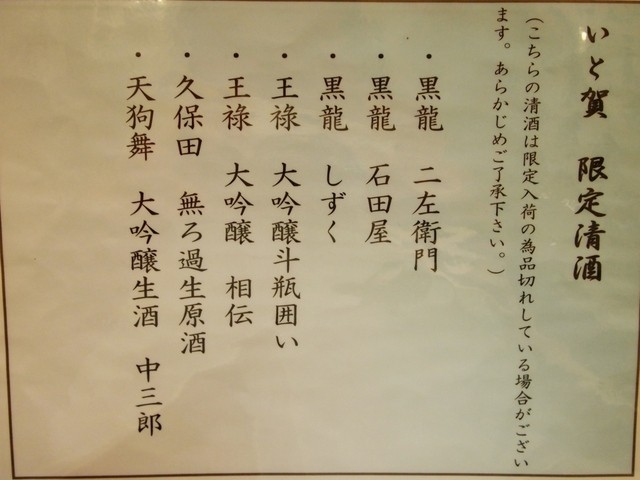 いと賀　限定清酒
（こちらの清酒は限定入荷の為品切れしている場合がござい
ます。あらかじめご了承下さい。）
・黒龍　二左衛門
・黒龍　石田屋
・黒龍　しずく
・王祿　大吟醸斗瓶囲い
・王祿　大吟醸　相伝
・久保田　無ろ過生原酒
・天狗舞　大吟醸生酒　中三郎